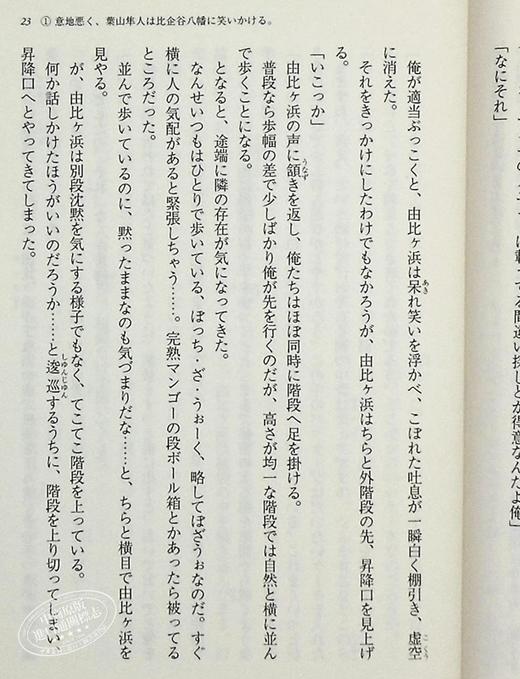 23 ① 意地悪く、葉山隼人は比企谷八幡に笑いかける。
「なにそれ」
間違い探しとか得意なんだよ俺」
俺が適当ぶっこくと、由比ヶ浜は呆れ笑いを浮かべ、こぼれた吐息が一瞬白く棚引き、虚空
に消えた。
それをきっかけにしたわけでもなかろうが、由比ヶ浜はちらと外階段の先、昇降口を見上げ
「いこっか」
由比ヶ浜の声に頷きを返し、俺たちはほぼ同時に階段へ足を掛ける。
普段なら歩幅の差で少しばかり俺が先を行くのだが、高さが均一な階段では自然と横に並ん
で歩くことになる。
となると、途端に隣の存在が気になってきた。
なんせいつもはひとりで歩いている、ぼっち・ざ・うぉーく、略してぼざうぉなのだ。すぐ
横に人の気配があると緊張しちゃう……。完熟マンゴーの段ボール箱とかあったら被ってる
ところだった。
並んで歩いているのに、黙ったままなのも気づまりだな……と、ちらと横目で由比ヶ浜を
見やる。
が、由比ヶ浜は別段沈黙を気にする様子でもなく、てこてこ階段を上っている。
何か話しかけたほうがいいのだろうか……と逡巡するうちに、階段を上り切ってしまい、
昇降口へとやってきてしまった。